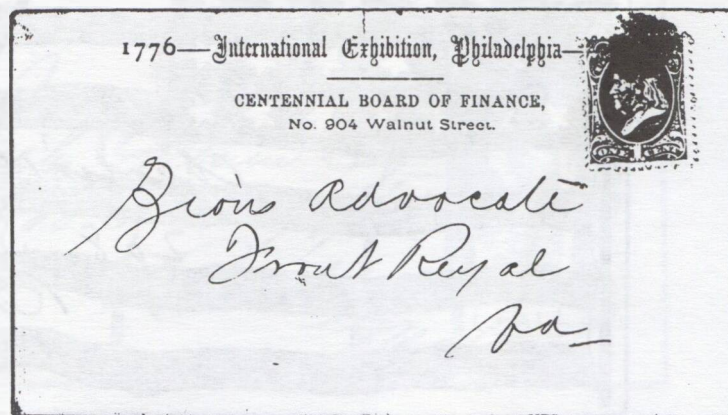 1776—International Exhibition, Philadelphia—
CENTENNIAL BOARD OF FINANCE,
No. 904 Walnut Street.
ONE CENT
Zion's Advocate
Front Royal
Va